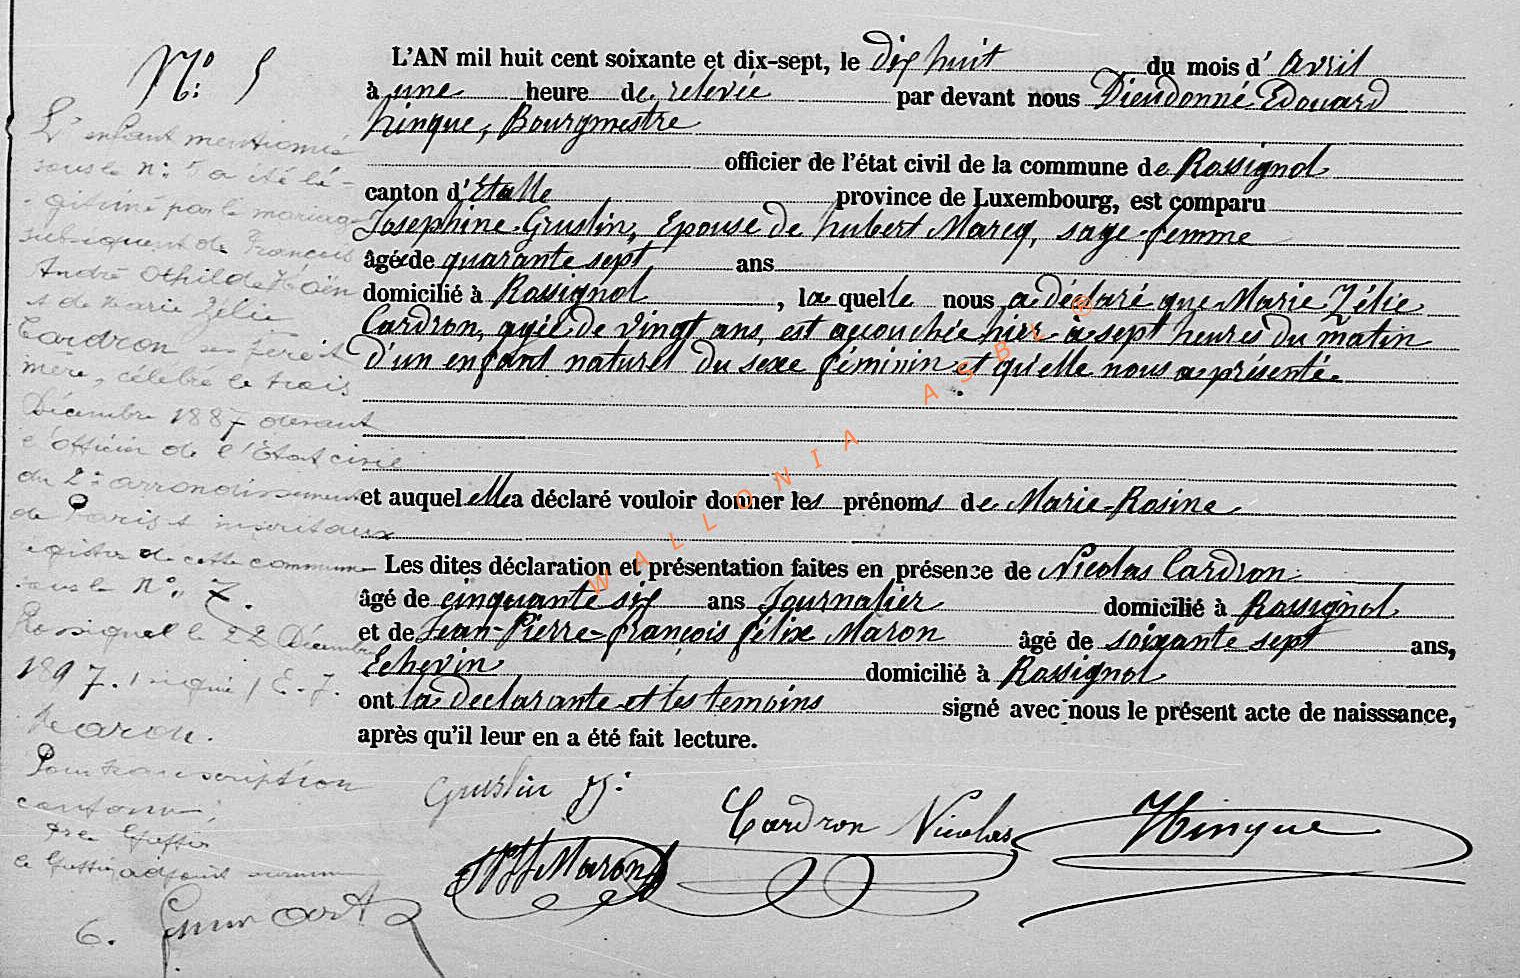 N°: 5
L'enfant mentionné
sous le n: 5 a été lé-
gitimé par le mariage
subséquent de François
André Othilde
et de Marie Zélie
Cardron ses père et
mère, célébré le trois
Décembre 1887 devant
l'officier de l'État civil
du 2e arrondissement
de Paris et inscrit aux
registres de cette commune
sous le N°. 7.
Rossignol le 22 Décembre
1897. signé / E. J.
Maron.
Pour transcription
conforme;
le Greffier adjoint
6.
L'AN mil huit cent soixante et dix-sept, le dix huit du mois d'avril
à une heure de relevée par devant nous Dieudonné Edouard
hinque, Bourgmestre
officier de l'état civil de la commune de Rossignol
canton d'Etalle province de Luxembourg, est comparu
Joséphine Gruslin, Epouse de hubert Marcq, sage-femme
âgée de quarante sept ans
domicilié à Rossignol, la quelle nous a déclaré que Marie Zélie
Cardron, agée de vingt ans, est accouchée hier à sept heures du matin
d'un enfant naturel du sexe féminin et qu'elle nous a présenté.
et auquel elle a déclaré vouloir donner les prénoms de Marie-Rosine
Les dites déclaration et présentation faites en présence de Nicolas Cardron
âgé de cinquante six ans Journalier domicilié à Rossignol
et de Jean-Pierre-françois félix Maron âgé de soixante sept ans,
Echevin domicilié à Rossignol
ont la déclarante et les temoins signé avec nous le présent acte de naisssance,
après qu'il leur en a été fait lecture.
Gruslin J:
Cardron Nicolas
Hinque
Maron
WALLONIA ASBL ®